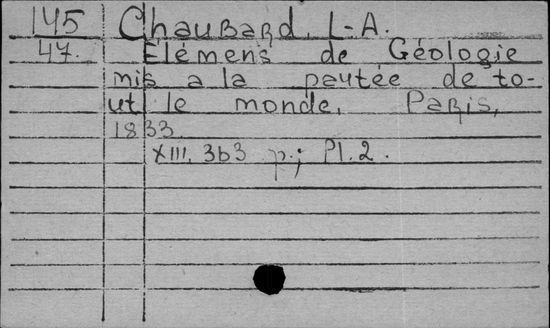 145 Chaubard, L-A.
47. Elémens de Géologie
mis a la pautée de to-
ut le monde, Paris,
1833.
XIII, 363 p.; Pl. 2.